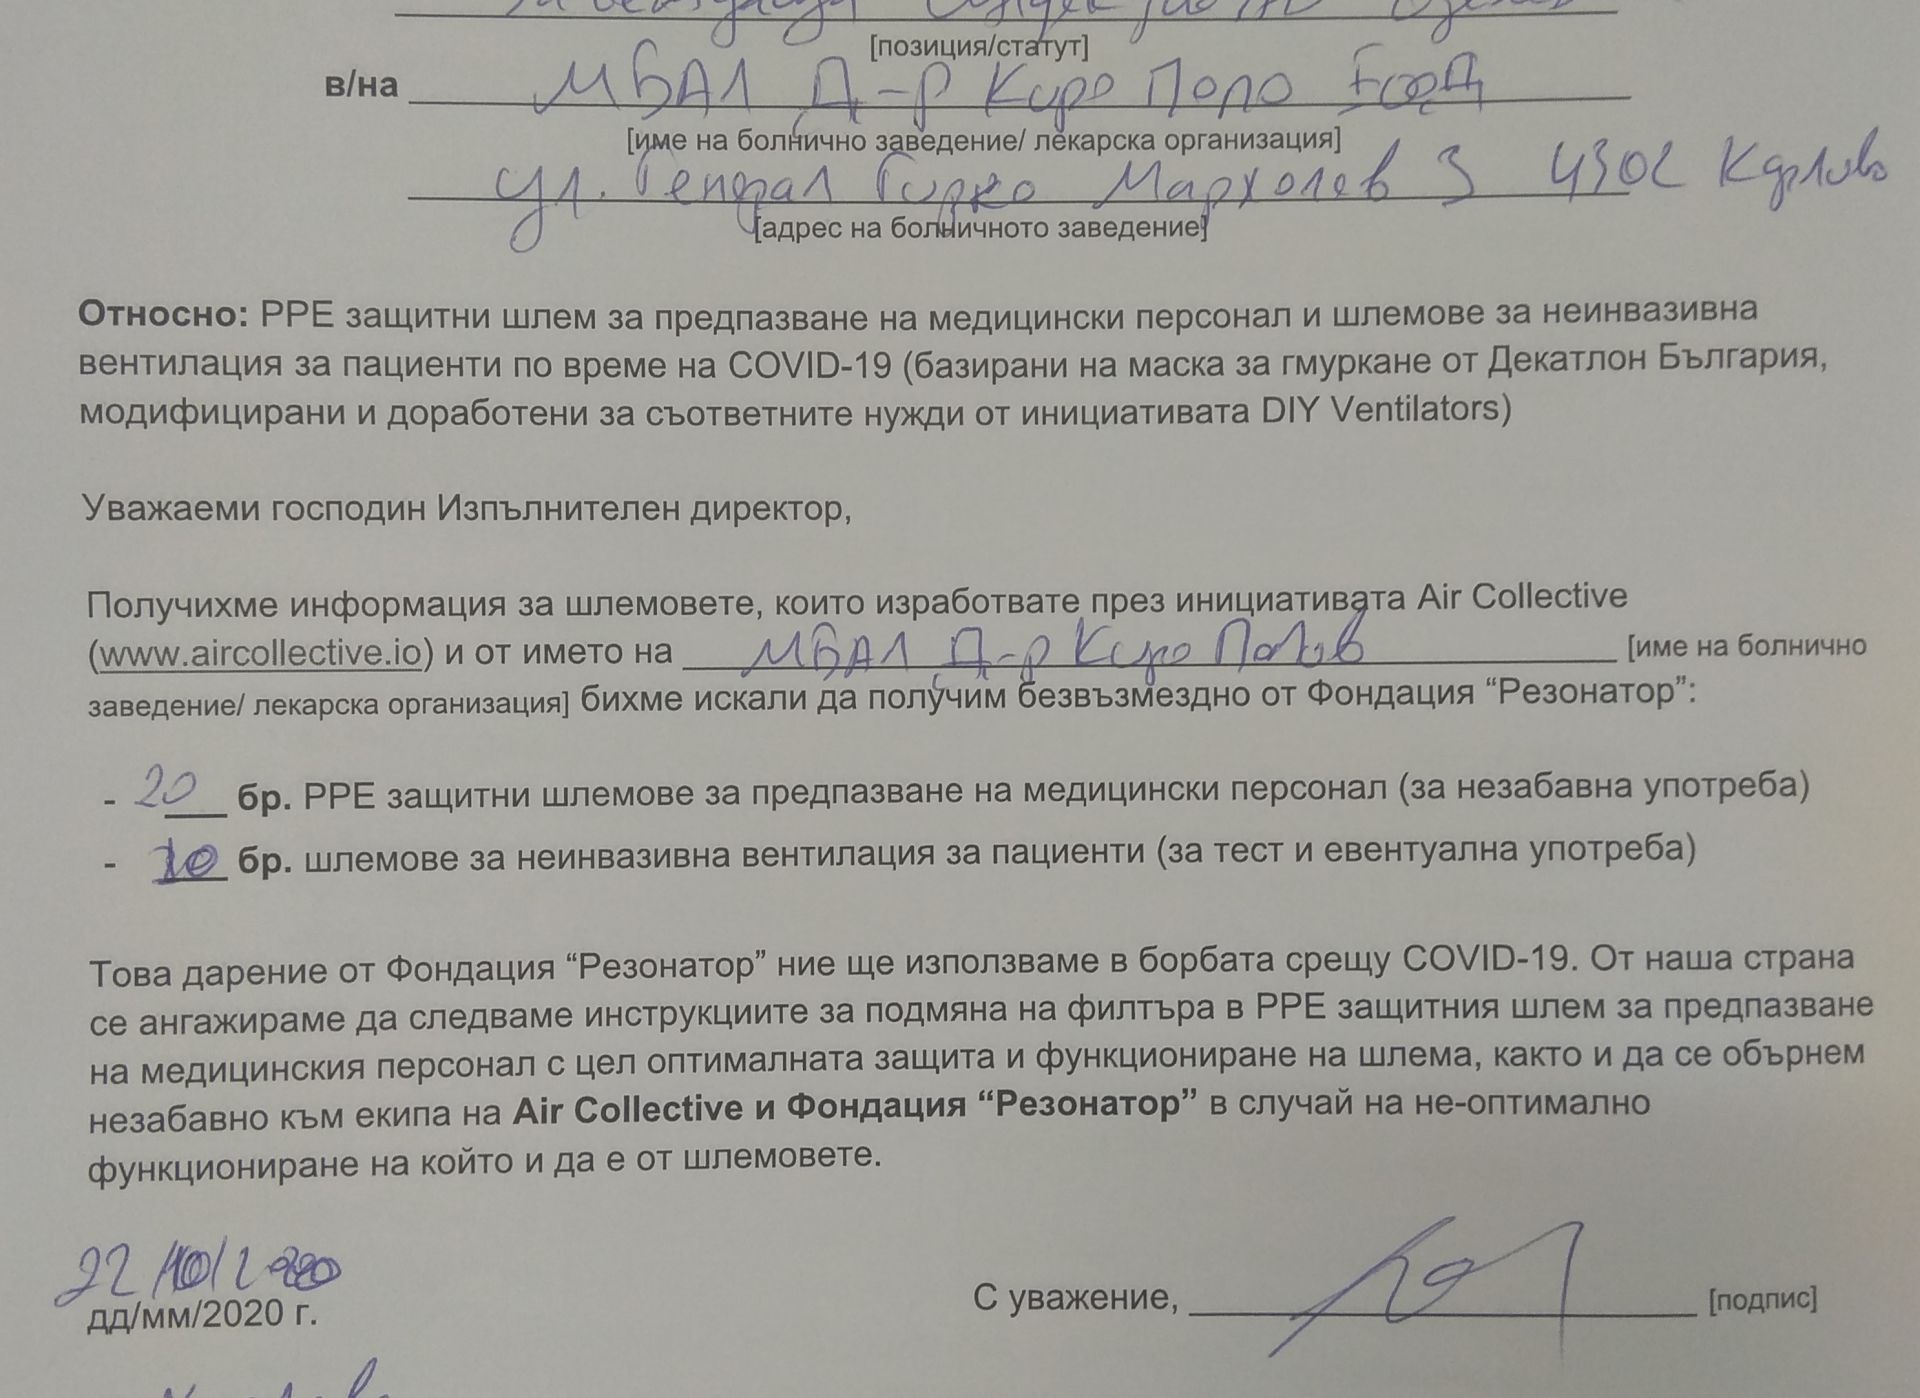 [позиция/статут]
в/на МБАЛ Д-р Киро Попо ЕООД
[име на болнично заведение/ лекарска организация]
ул. Генерал Гурко Мархолев 3 4302 Карлово
[адрес на болничното заведение]
Относно: PPE защитни шлем за предпазване на медицински персонал и шлемове за неинвазивна
вентилация за пациенти по време на COVID-19 (базирани на маска за гмуркане от Декатлон България,
модифицирани и доработени за съответните нужди от инициативата DIY Ventilators)
Уважаеми господин Изпълнителен директор,
Получихме информация за шлемовете, които изработвате през инициативата Air Collective
(www.aircollective.io) и от името на МБАЛ Д-р Киро Попов [име на болнично
заведение/ лекарска организация] бихме искали да получим безвъзмездно от Фондация “Резонатор”:
- 20 бр. PPE защитни шлемове за предпазване на медицински персонал (за незабавна употреба)
- 10 бр. шлемове за неинвазивна вентилация за пациенти (за тест и евентуална употреба)
Това дарение от Фондация “Резонатор” ние ще използваме в борбата срещу COVID-19. От наша страна
се ангажираме да следваме инструкциите за подмяна на филтъра в PPE защитния шлем за предпазване
на медицинския персонал с цел оптималната защита и функциониране на шлема, както и да се обърнем
незабавно към екипа на Air Collective и Фондация “Резонатор” в случай на не-оптимално
функциониране на който и да е от шлемовете.
22/10/2020
дд/мм/2020 г.
С уважение, [подпис]